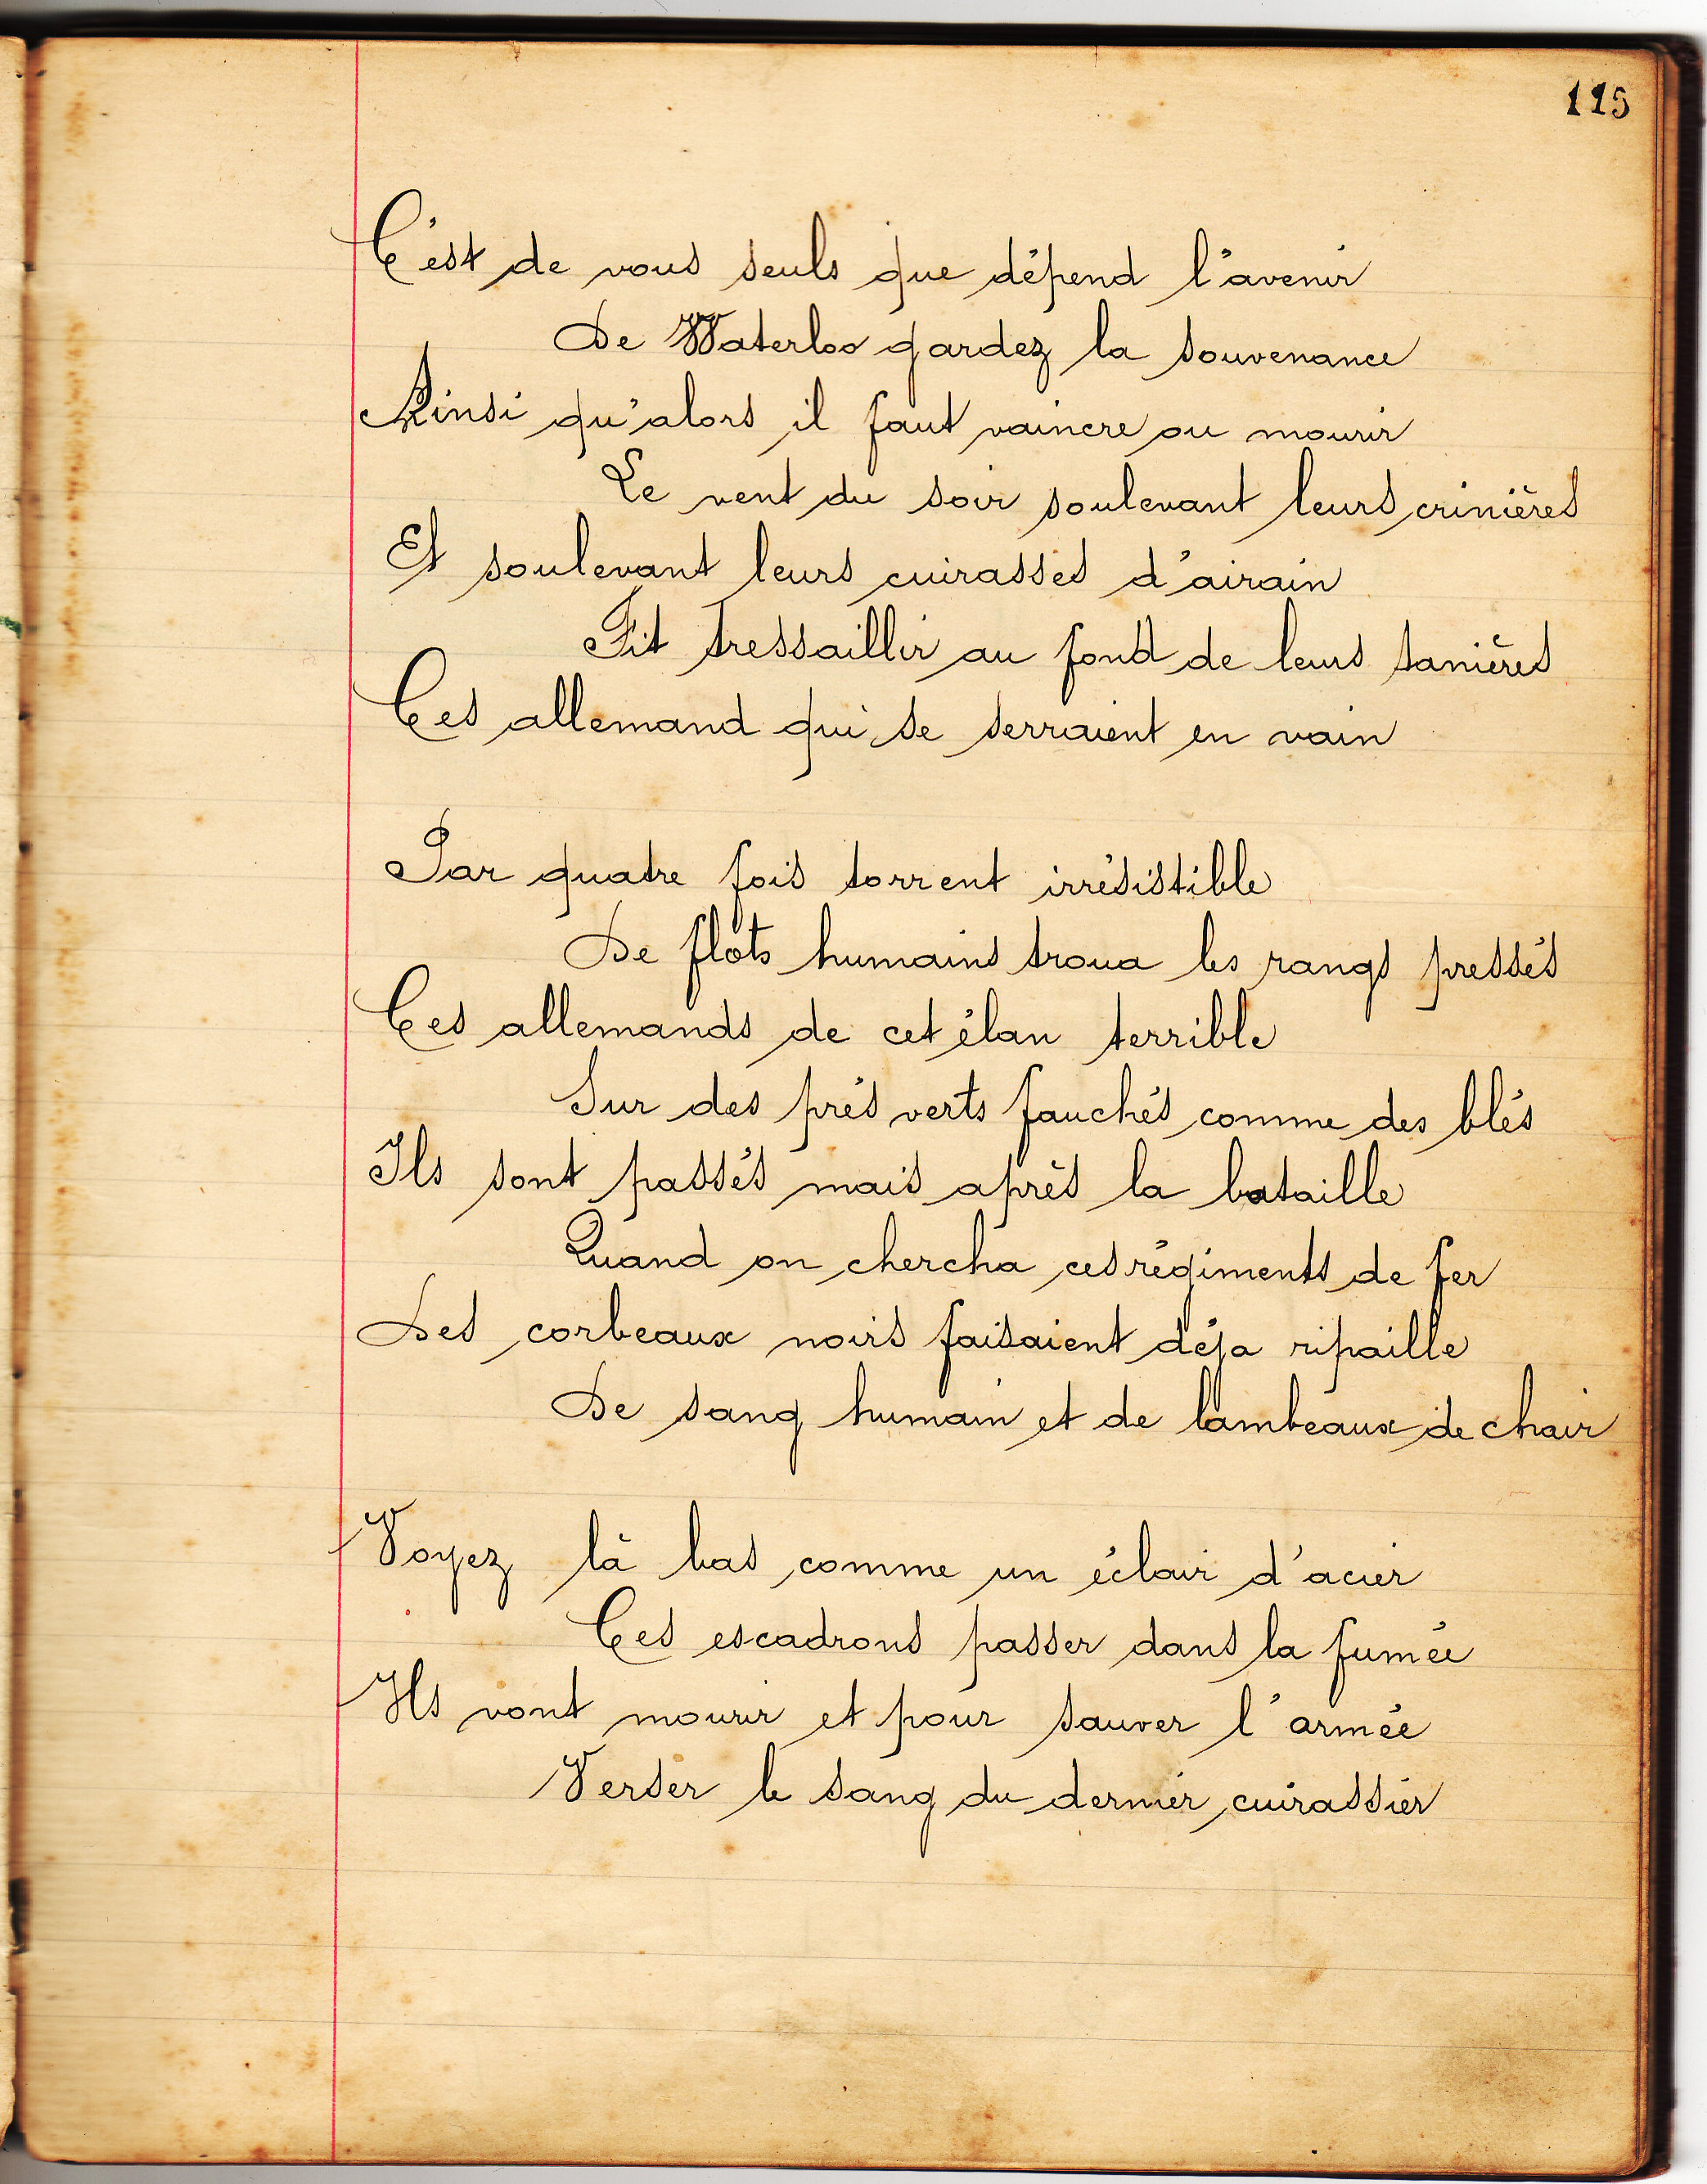 115
C'est de vous seuls que dépend l'avenir
De Waterloo gardez la souvenance
Ainsi qu'alors il faut vaincre ou mourir
Le vent du soir soulevant leurs crinières
Et soulevant leurs cuirasses d'airain
Fit tressaillir au fond de leurs tanières
Ces allemand qui se serraient en vain
Par quatre fois torrent irrésistible
De flots humains troua les rangs pressés
Ces allemands de cet élan terrible
Sur des prés verts fauchés comme des blés
Ils sont passés mais après la bataille
Quand on chercha ces régiments de fer
Des corbeaux noirs faisaient déja ripaille
De sang humain et de lambeaux de chair
Voyez là bas comme un éclair d'acier
Ces escadrons passer dans la fumée
Ils vont mourir et pour sauver l'armée
Verser le sang du dernier cuirassier